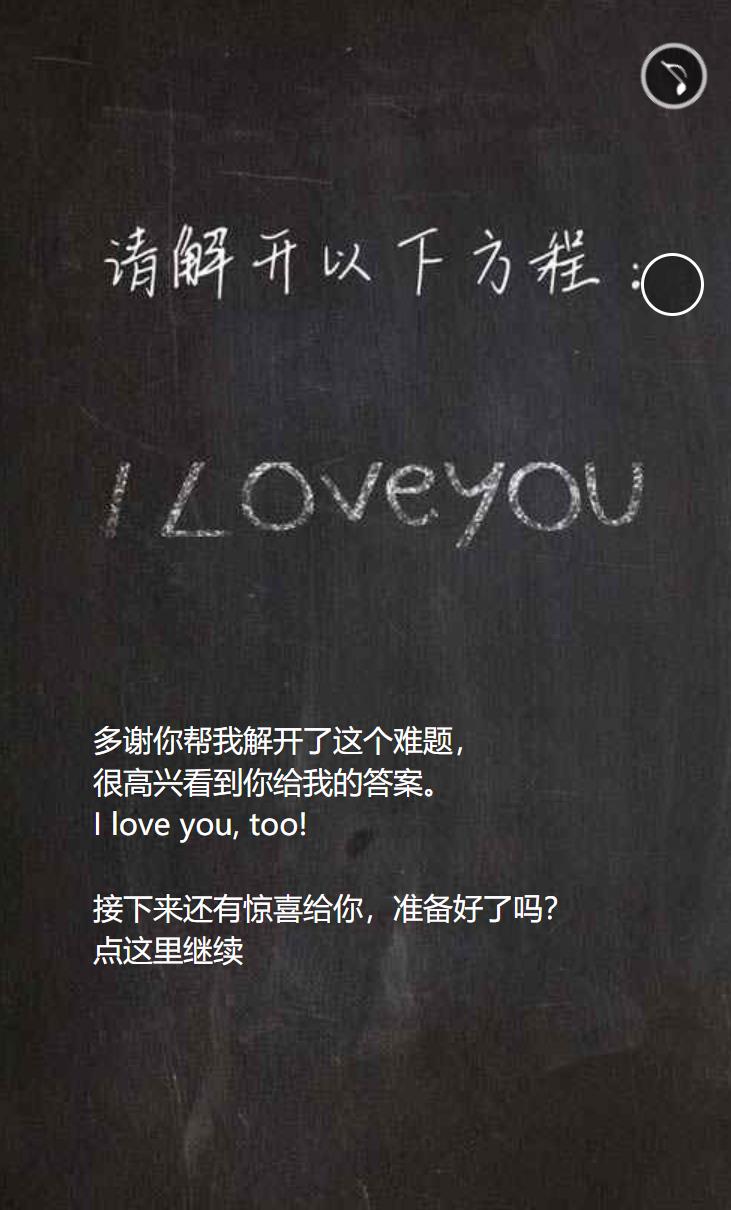 请解开以下方程：
I Loveyou
多谢你帮我解开了这个难题，
很高兴看到你给我的答案。
I love you, too!
接下来还有惊喜给你，准备好了吗?
点这里继续